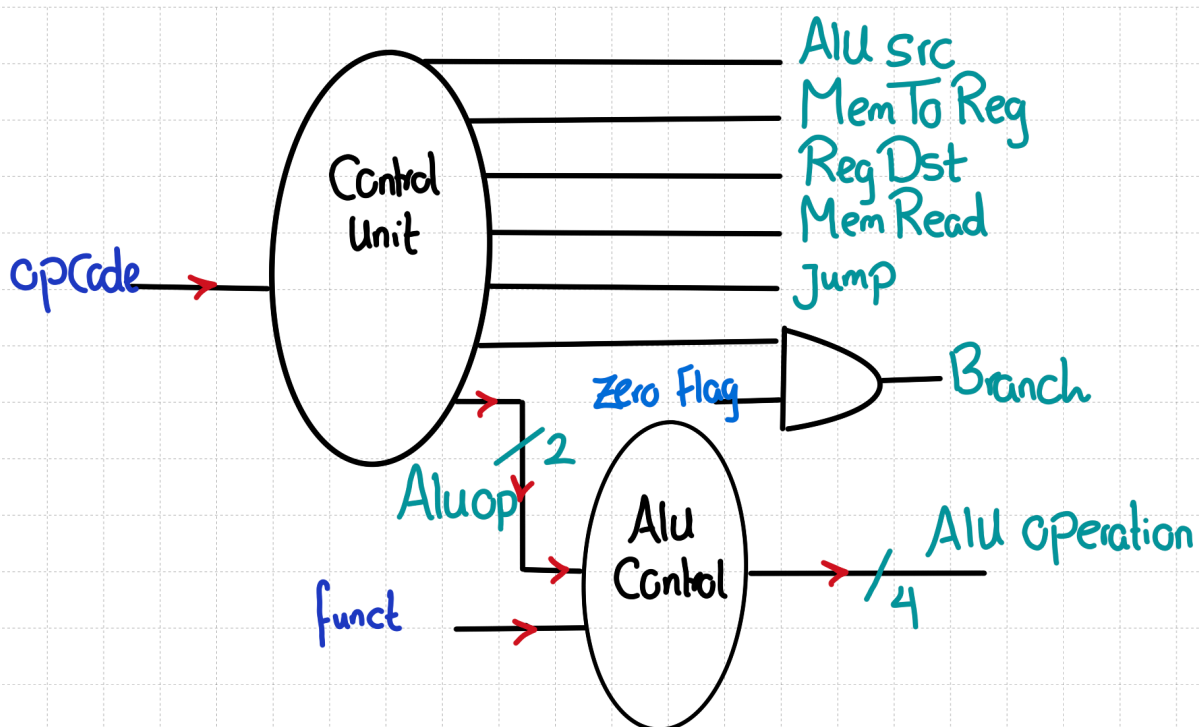 Alu src
MemToReg
RegDst
MemRead
Jump
Control
Unit
opCode
Zero Flag
Branch
2
Aluop
Alu
Control
Alu operation
4
funct